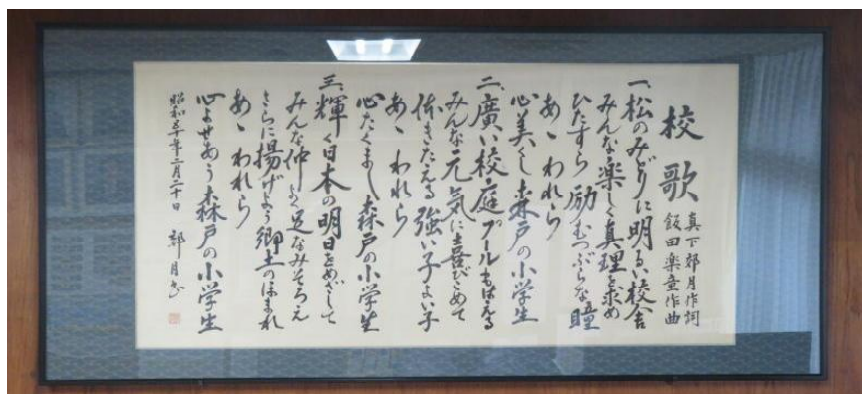 校歌
真下郭月作詞
飯田楽童作曲
一、松のみどりに明るい校舎
みんな楽しく真理を求め
ひたすら励むつぶらな瞳
あゝわれら
心美くし森戸の小学生
二、廣い校庭プールもはえる
みんな元気に喜びこめて
体きたえる強い子よい子
あゝわれら
心たくまし森戸の小学生
三、輝く日本の明日をめざして
みんな仲よく足なみそろえ
さらに揚げよう郷土のほまれ
あゝわれら
心よせあう森戸の小学生
昭和五十年二月二十日